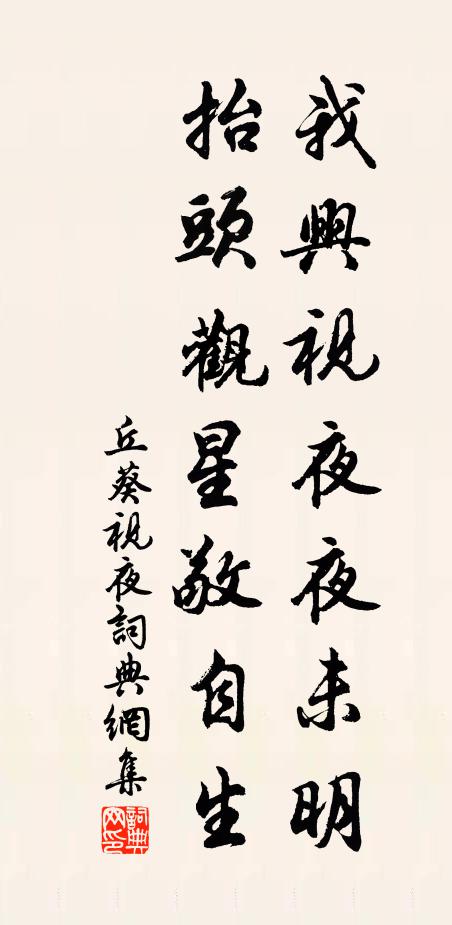 我興視夜夜未明
抬頭觀星敬自生
丘葵視夜詞典網集
詞典
网印